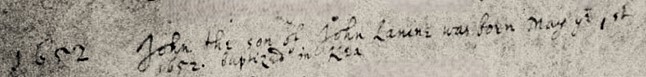 1652 John the son of John Lanine was born May ye 1st
1652. baptized in Kea